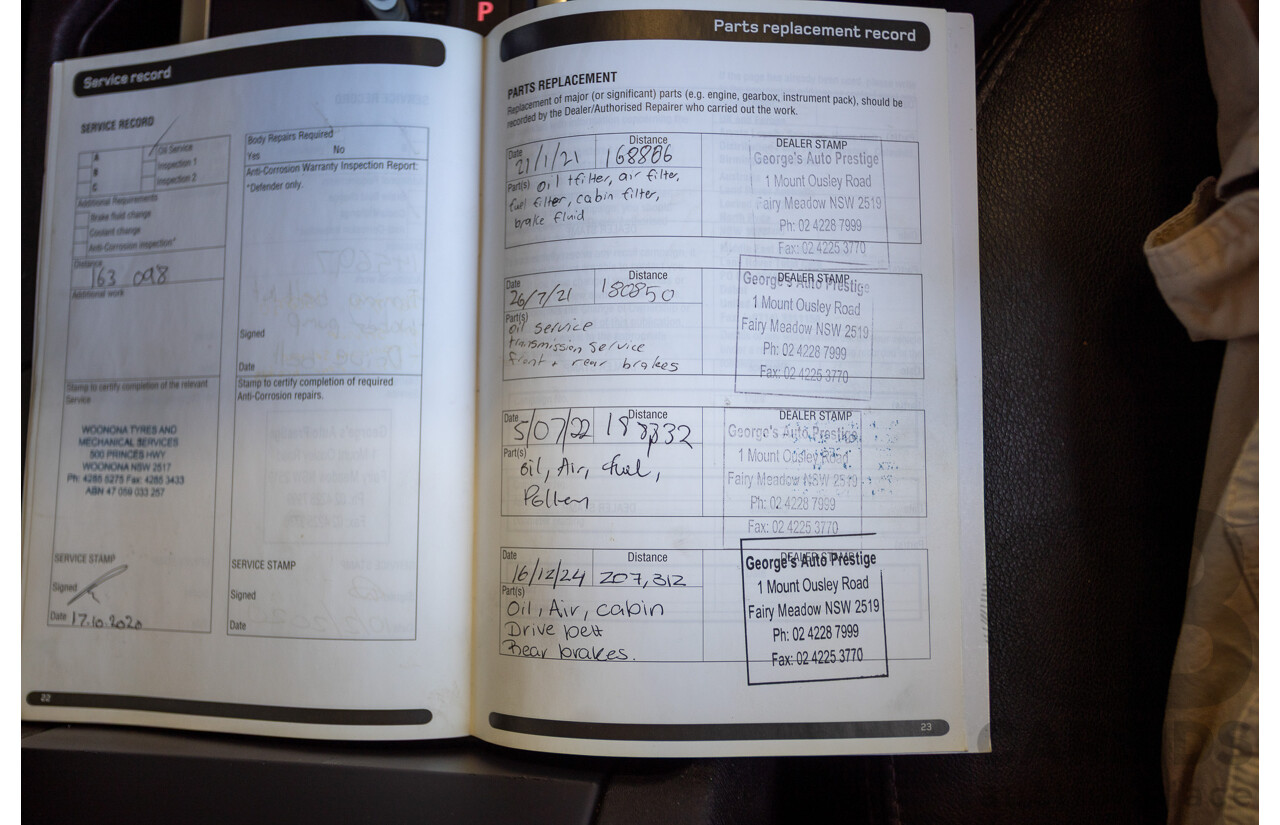 P
Service record
SERVICE RECORD
A
B
C
Oil Service
Inspection 1
Inspection 2
Additional Requirements
Brake fluid change
Coolant change
Anti-Corrosion inspection*
Distance
163 098
Additional work
Stamp to certify completion of the relevant
Service
WOONONA TYRES AND
MECHANICAL SERVICES
500 PRINCES HWY
WOONONA NSW 2517
Ph: 4285 5275 Fax: 4285 3433
ABN 47 059 033 257
SERVICE STAMP
Signed
Date 17.10.2020
22
Body Repairs Required
Yes No
Anti-Corrosion Warranty Inspection Report:
*Defender only.
Signed
Date
Stamp to certify completion of required
Anti-Corrosion repairs.
SERVICE STAMP
Signed
Date
Parts replacement record
PARTS REPLACEMENT
Replacement of major (or significant) parts (e.g. engine, gearbox, instrument pack), should be
recorded by the Dealer/Authorised Repairer who carried out the work.
Date 21/1/21
Distance 168886
Part(s) oil + filter, air filter,
fuel filter, cabin filter,
brake fluid
DEALER STAMP
George's Auto Prestige
1 Mount Ousley Road
Fairy Meadow NSW 2519
Ph: 02 4228 7999
Fax: 02 4225 3770
Date 26/7/21
Distance 180850
Part(s)
oil service
transmission service
front + rear brakes
DEALER STAMP
George's Auto Prestige
1 Mount Ousley Road
Fairy Meadow NSW 2519
Ph: 02 4228 7999
Fax: 02 4225 3770
Date 5/07/22
Distance
Part(s)
oil, Air, fuel,
Pollen
DEALER STAMP
George's Auto Prestige
1 Mount Ousley Road
Fairy Meadow NSW 2519
Ph: 02 4228 7999
Fax: 02 4225 3770
Date 16/12/24
Distance 207,312
Part(s)
Oil, Air, cabin
Drive belt
Rear brakes.
DEALER STAMP
George's Auto Prestige
1 Mount Ousley Road
Fairy Meadow NSW 2519
Ph: 02 4228 7999
Fax: 02 4225 3770
23